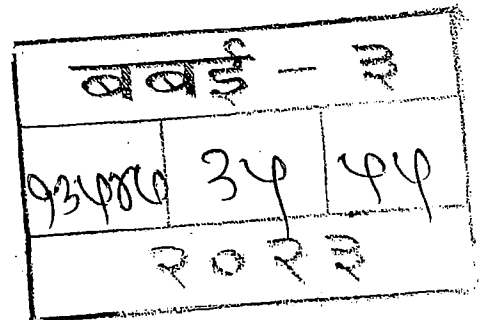 बबई - ३
१३५४५ ३५ ५५
२०२३